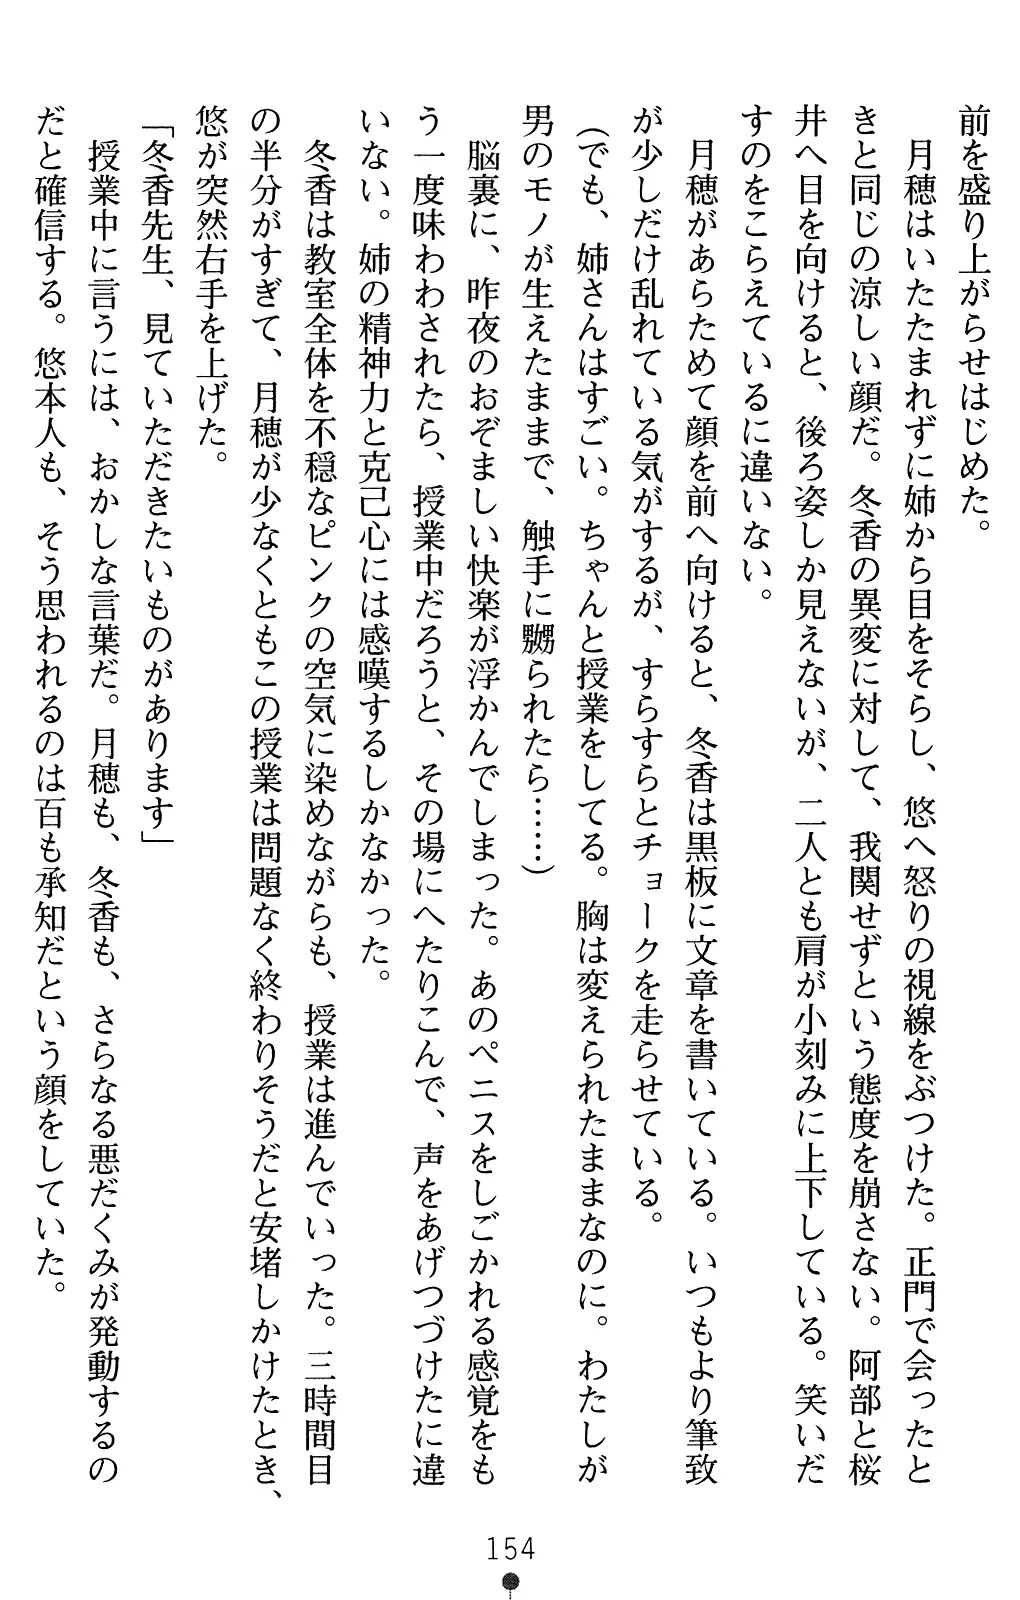 前を盛り上がらせはじめた。
　月穂はいたたまれずに姉から目をそらし、悠へ怒りの視線をぶつけた。正門で会ったと
きと同じの涼しい顔だ。冬香の異変に対して、我関せずという態度を崩さない。阿部と桜
井へ目を向けると、後ろ姿しか見えないが、二人とも肩が小刻みに上下している。笑いだ
すのをこらえているに違いない。
　月穂があらためて顔を前へ向けると、冬香は黒板に文章を書いている。いつもより筆致
が少しだけ乱れている気がするが、すらすらとチョークを走らせている。
（でも、姉さんはすごい。ちゃんと授業をしてる。胸は変えられたままなのに。わたしが
男のモノが生えたままで、触手に嬲られたら……）
　脳裏に、昨夜のおぞましい快楽が浮かんでしまった。あのペニスをしごかれる感覚をも
う一度味わわされたら、授業中だろうと、その場にへたりこんで、声をあげつづけたに違
いない。姉の精神力と克己心には感嘆するしかなかった。
　冬香は教室全体を不穏なピンクの空気に染めながらも、授業は進んでいった。三時間目
の半分がすぎて、月穂が少なくともこの授業は問題なく終わりそうだと安堵しかけたとき、
悠が突然右手を上げた。
「冬香先生、見ていただきたいものがあります」
　授業中に言うには、おかしな言葉だ。月穂も、冬香も、さらなる悪だくみが発動するの
だと確信する。悠本人も、そう思われるのは百も承知だという顔をしていた。
154